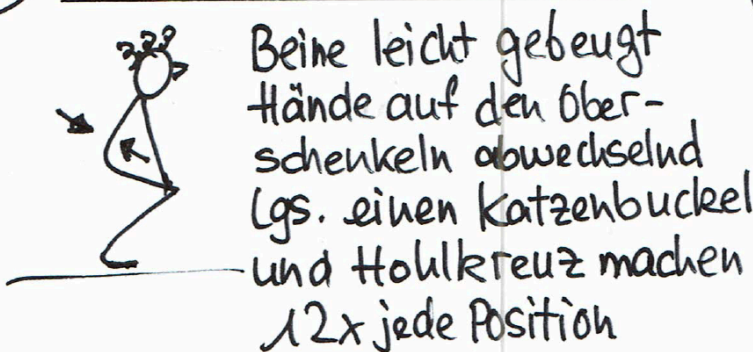 Beine leicht gebeugt
Hände auf den Ober-
schenkeln abwechselnd
lgs. einen Katzenbuckel
und Hohlkreuz machen
12x jede Position